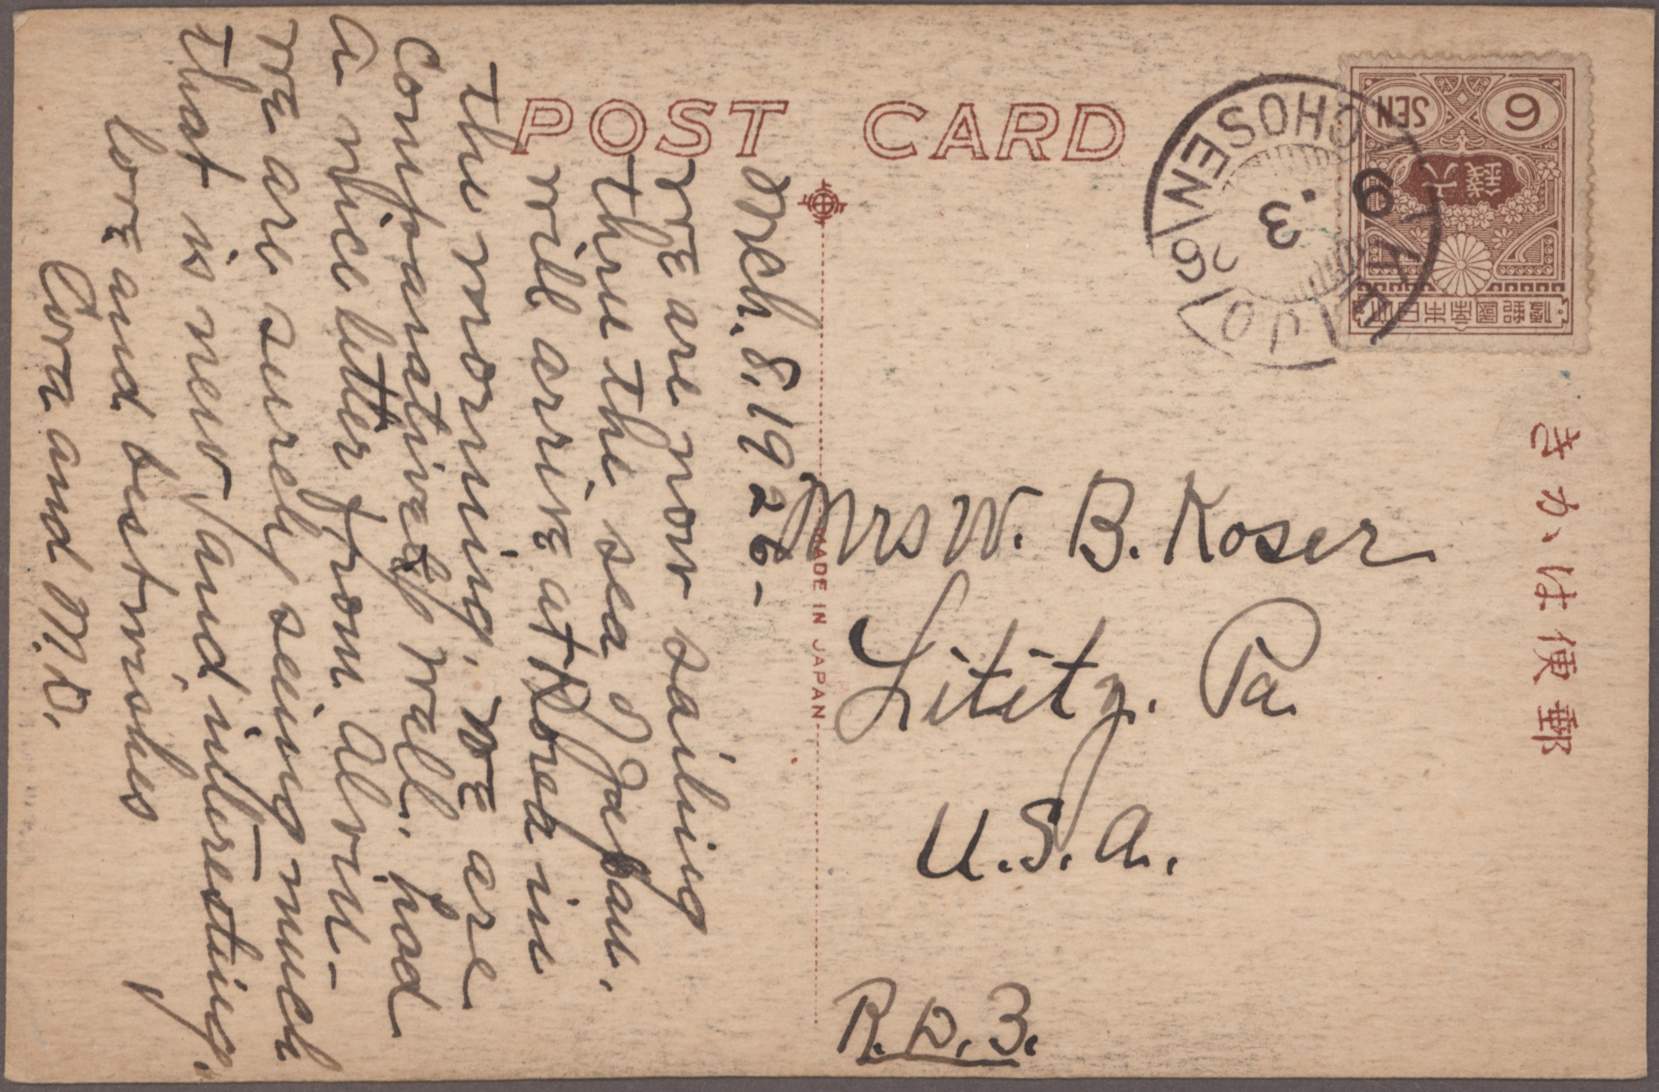 POST CARD
Mch. 8, 1926-
We are now sailing
thru the sea of Japan.
will arrive at Korea in
the morning. We are
comparatively well. had
a nice letter from Alvin-
We are surely seeing much
that is new, and interesting.
love and best wishes
Cora and M.D.
MADE IN JAPAN
6 SEN
六錢
大日本帝國郵便
CHOSEN
9
3
26
JO
Mrs W. B. Koser
Lititz. Pa
U.S.A.
R.D.3.
きがは便郵